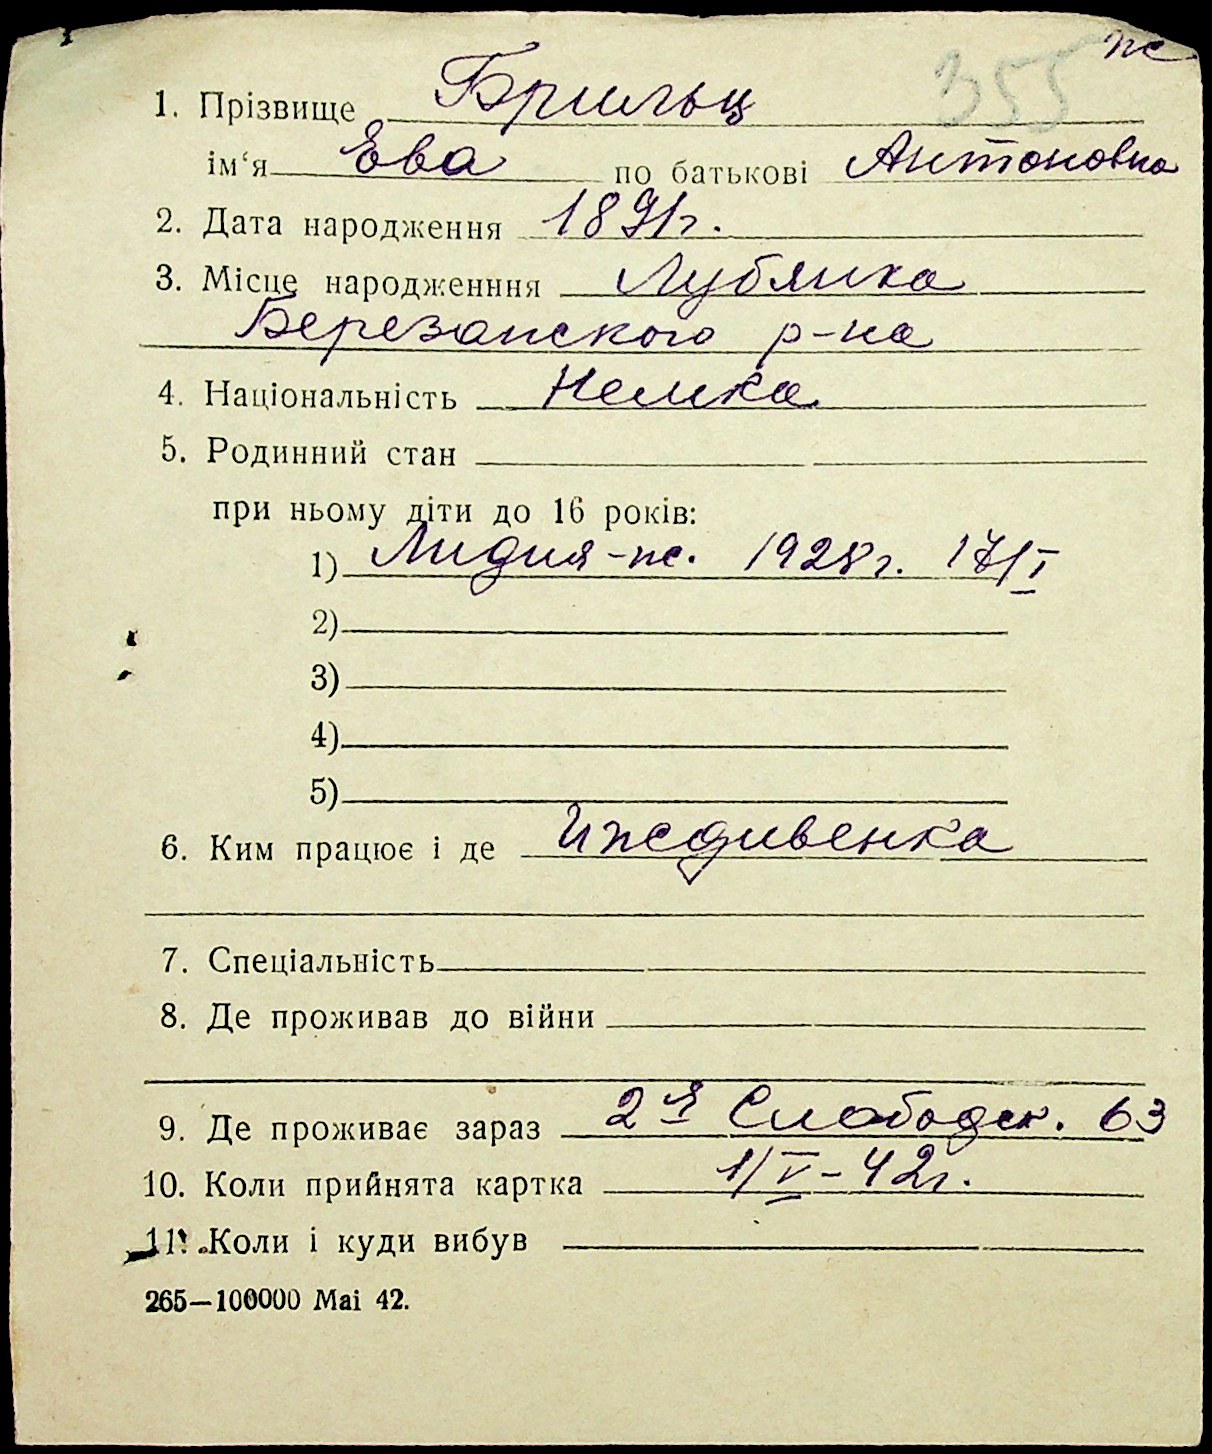 355 ж
1. Прізвище Брильц
ім‘я Ева по батькові Антоновна
2. Дата народження 1891г.
3. Місце народженння Лубянка
Березанского р-на
4. Національність Немка
5. Родинний стан
при ньому діти до 16 років:
1) Лидия-ж. 1928г. 17/I
2)
3)
4)
5)
6. Ким працює і де Иждивенка
7. Спеціальність
8. Де проживав до війни
9. Де проживає зараз 2 я Слободск. 63
10. Коли прийнята картка 1/V-42г.
11. Коли і куди вибув
265—100000 Mai 42.